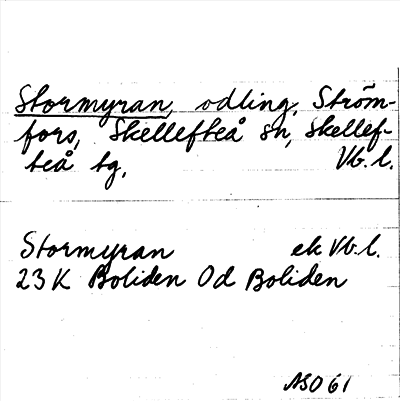 Stormyran, odling, Ström-
fors, Skellefteå sn, Skellef-
teå tg, Vb. l.
Stormyran ek Vb. l.
23 K Boliden Od Boliden
ASO 61